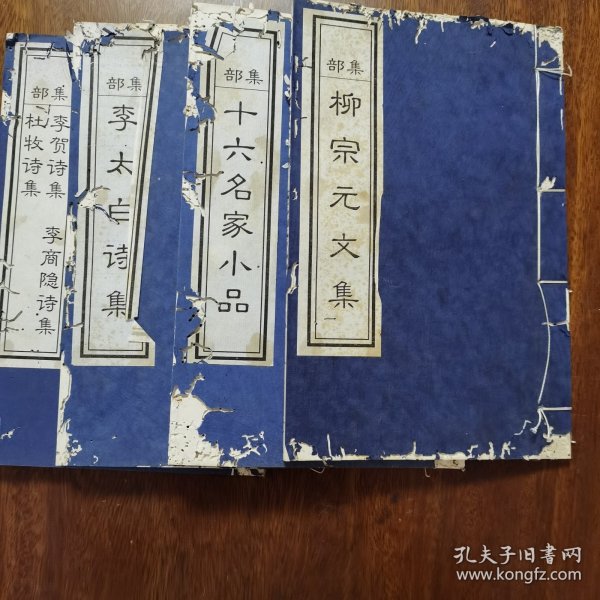 集部
柳宗元文集
一
集部
十六名家小品
集部
李太白诗集
集部
李贺诗集
李商隐诗集
杜牧诗集
孔夫子旧書网
www.kongfz.com